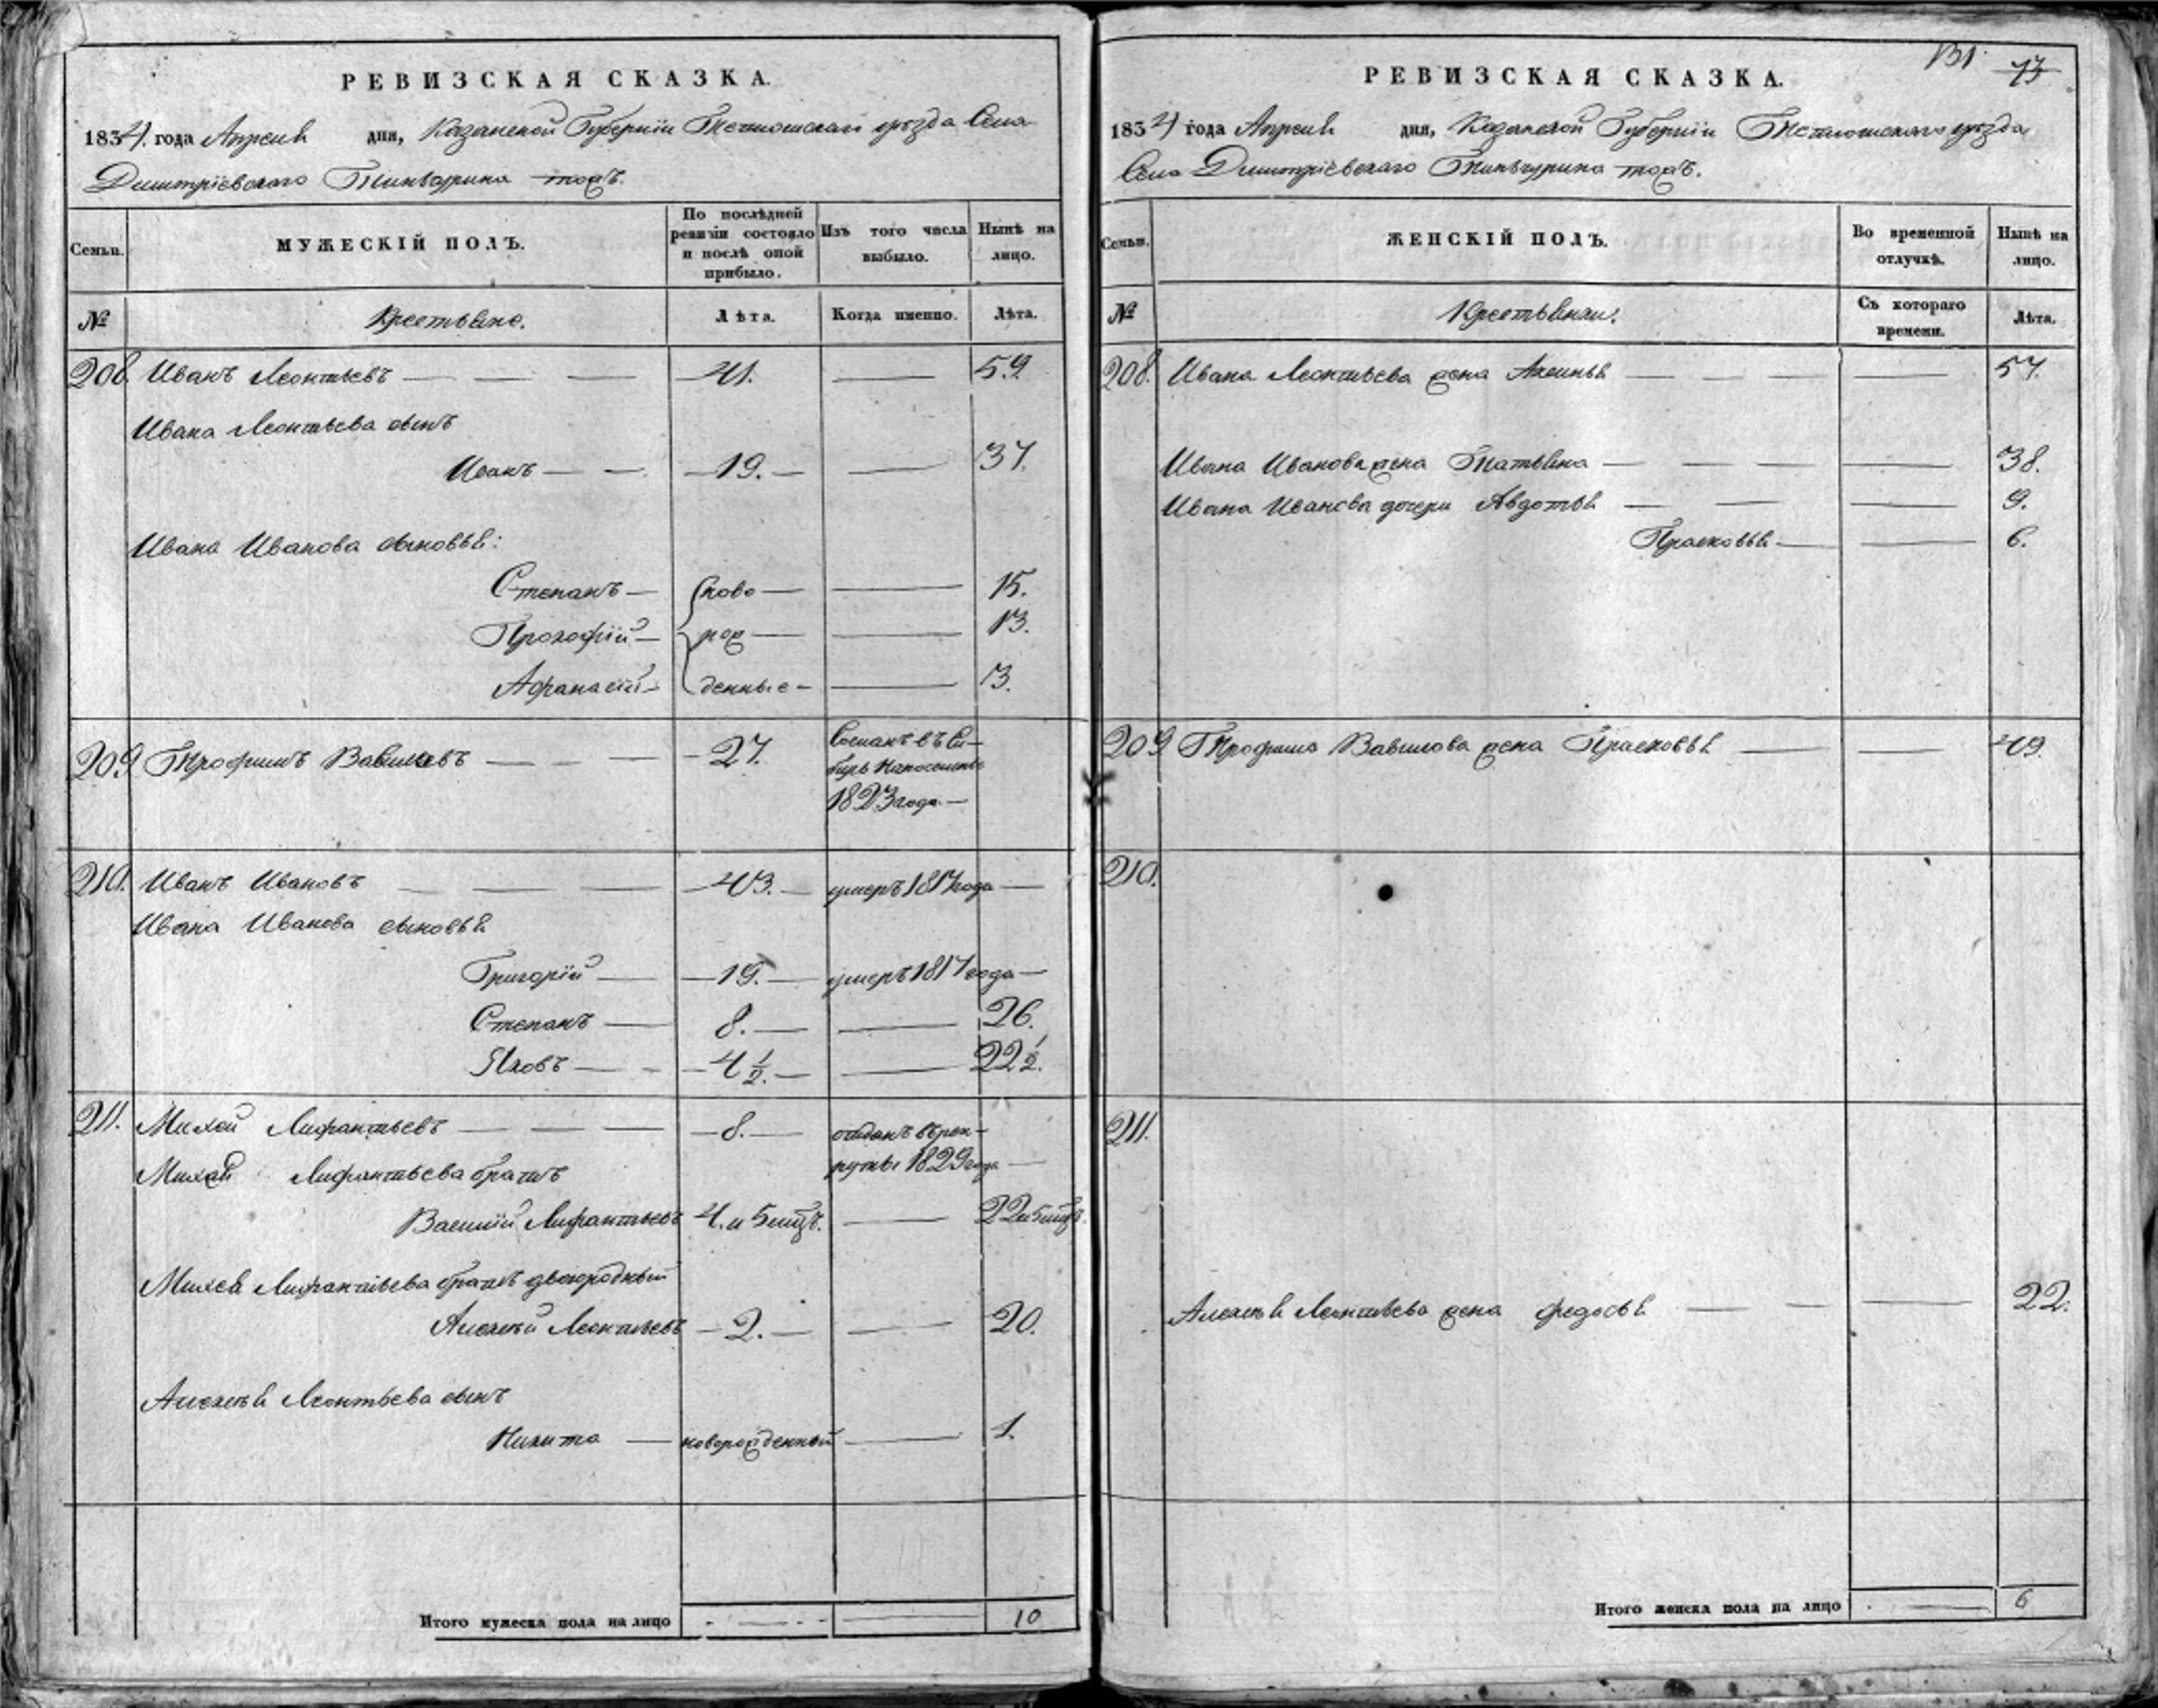 РЕВИЗСКАЯ СКАЗКА.
1834. года Апреля дня, Казанской Губернiи Тетюшскаго уѣзда Села
Димитрiевскаго Тинчурина тожъ.
Семьи.
МУЖЕСКIЙ ПОЛЪ.
По послѣдней
ревизiи состояло
и послѣ оной
прибыло.
Изъ того числа
выбыло.
Нынѣ на
лицо.
№
Крестьяне.
Лѣта.
Когда именно.
Лѣта.
208. Иванъ Леонтьевъ — — — 41. — 59.
Ивана Леонтьева сынъ
Иванъ — — 19. — — 37.
Ивана Иванова сыновья:
Степанъ — ново — — 15.
Прокофiй — рож — — 13.
Афанасiй — денные — — 3.
209. Трофимъ Вавиловъ — — — 27. Сосланъ въ Си-
бирь на поселенье
1823 года. —
210. Иванъ Ивановъ — — — 43. — умеръ 1817 года —
Ивана Иванова сыновья
Григорiй — 19. — умеръ 1817 года —
Степанъ — 8. — — 26.
Яковъ — — 4 1/2. — — 22 1/2.
211. Михей Лифантьевъ — — — 8. — отданъ въ рек-
руты 1829 года —
Михея Лифантьева братъ
Василiй Лифантьевъ 4. и 5 мцъ. — 22 и 5 мцъ.
Михея Лифантьева братъ двоюродный
Алексѣй Леонтьевъ — 2. — — 20.
Алексѣя Леонтьева сынъ
Никита — новорожденный — 1.
Итого мужеска пола на лицо — — 10
131 73
РЕВИЗСКАЯ СКАЗКА.
1834 года Апреля дня, Казанской Губернiи Тетюшскаго уѣзда
Села Димитрiевскаго Тинчурина тожъ.
Семьи.
ЖЕНСКIЙ ПОЛЪ.
Во временной
отлучкѣ.
Нынѣ на
лицо.
№
Крестьянки.
Съ котораго
времени.
Лѣта.
208. Ивана Леонтьева жена Аксинья — — — — 57.
Ивана Иванова жена Татьяна — — — — 38.
Ивана Иванова дочери Авдотья — — — — 9.
Прасковья — — 6.
209 Трофима Вавилова жена Прасковья — — 49.
210.
211.
Алексѣя Леонтьева жена Федосья — — — 22.
Итого женска пола на лицо — 6